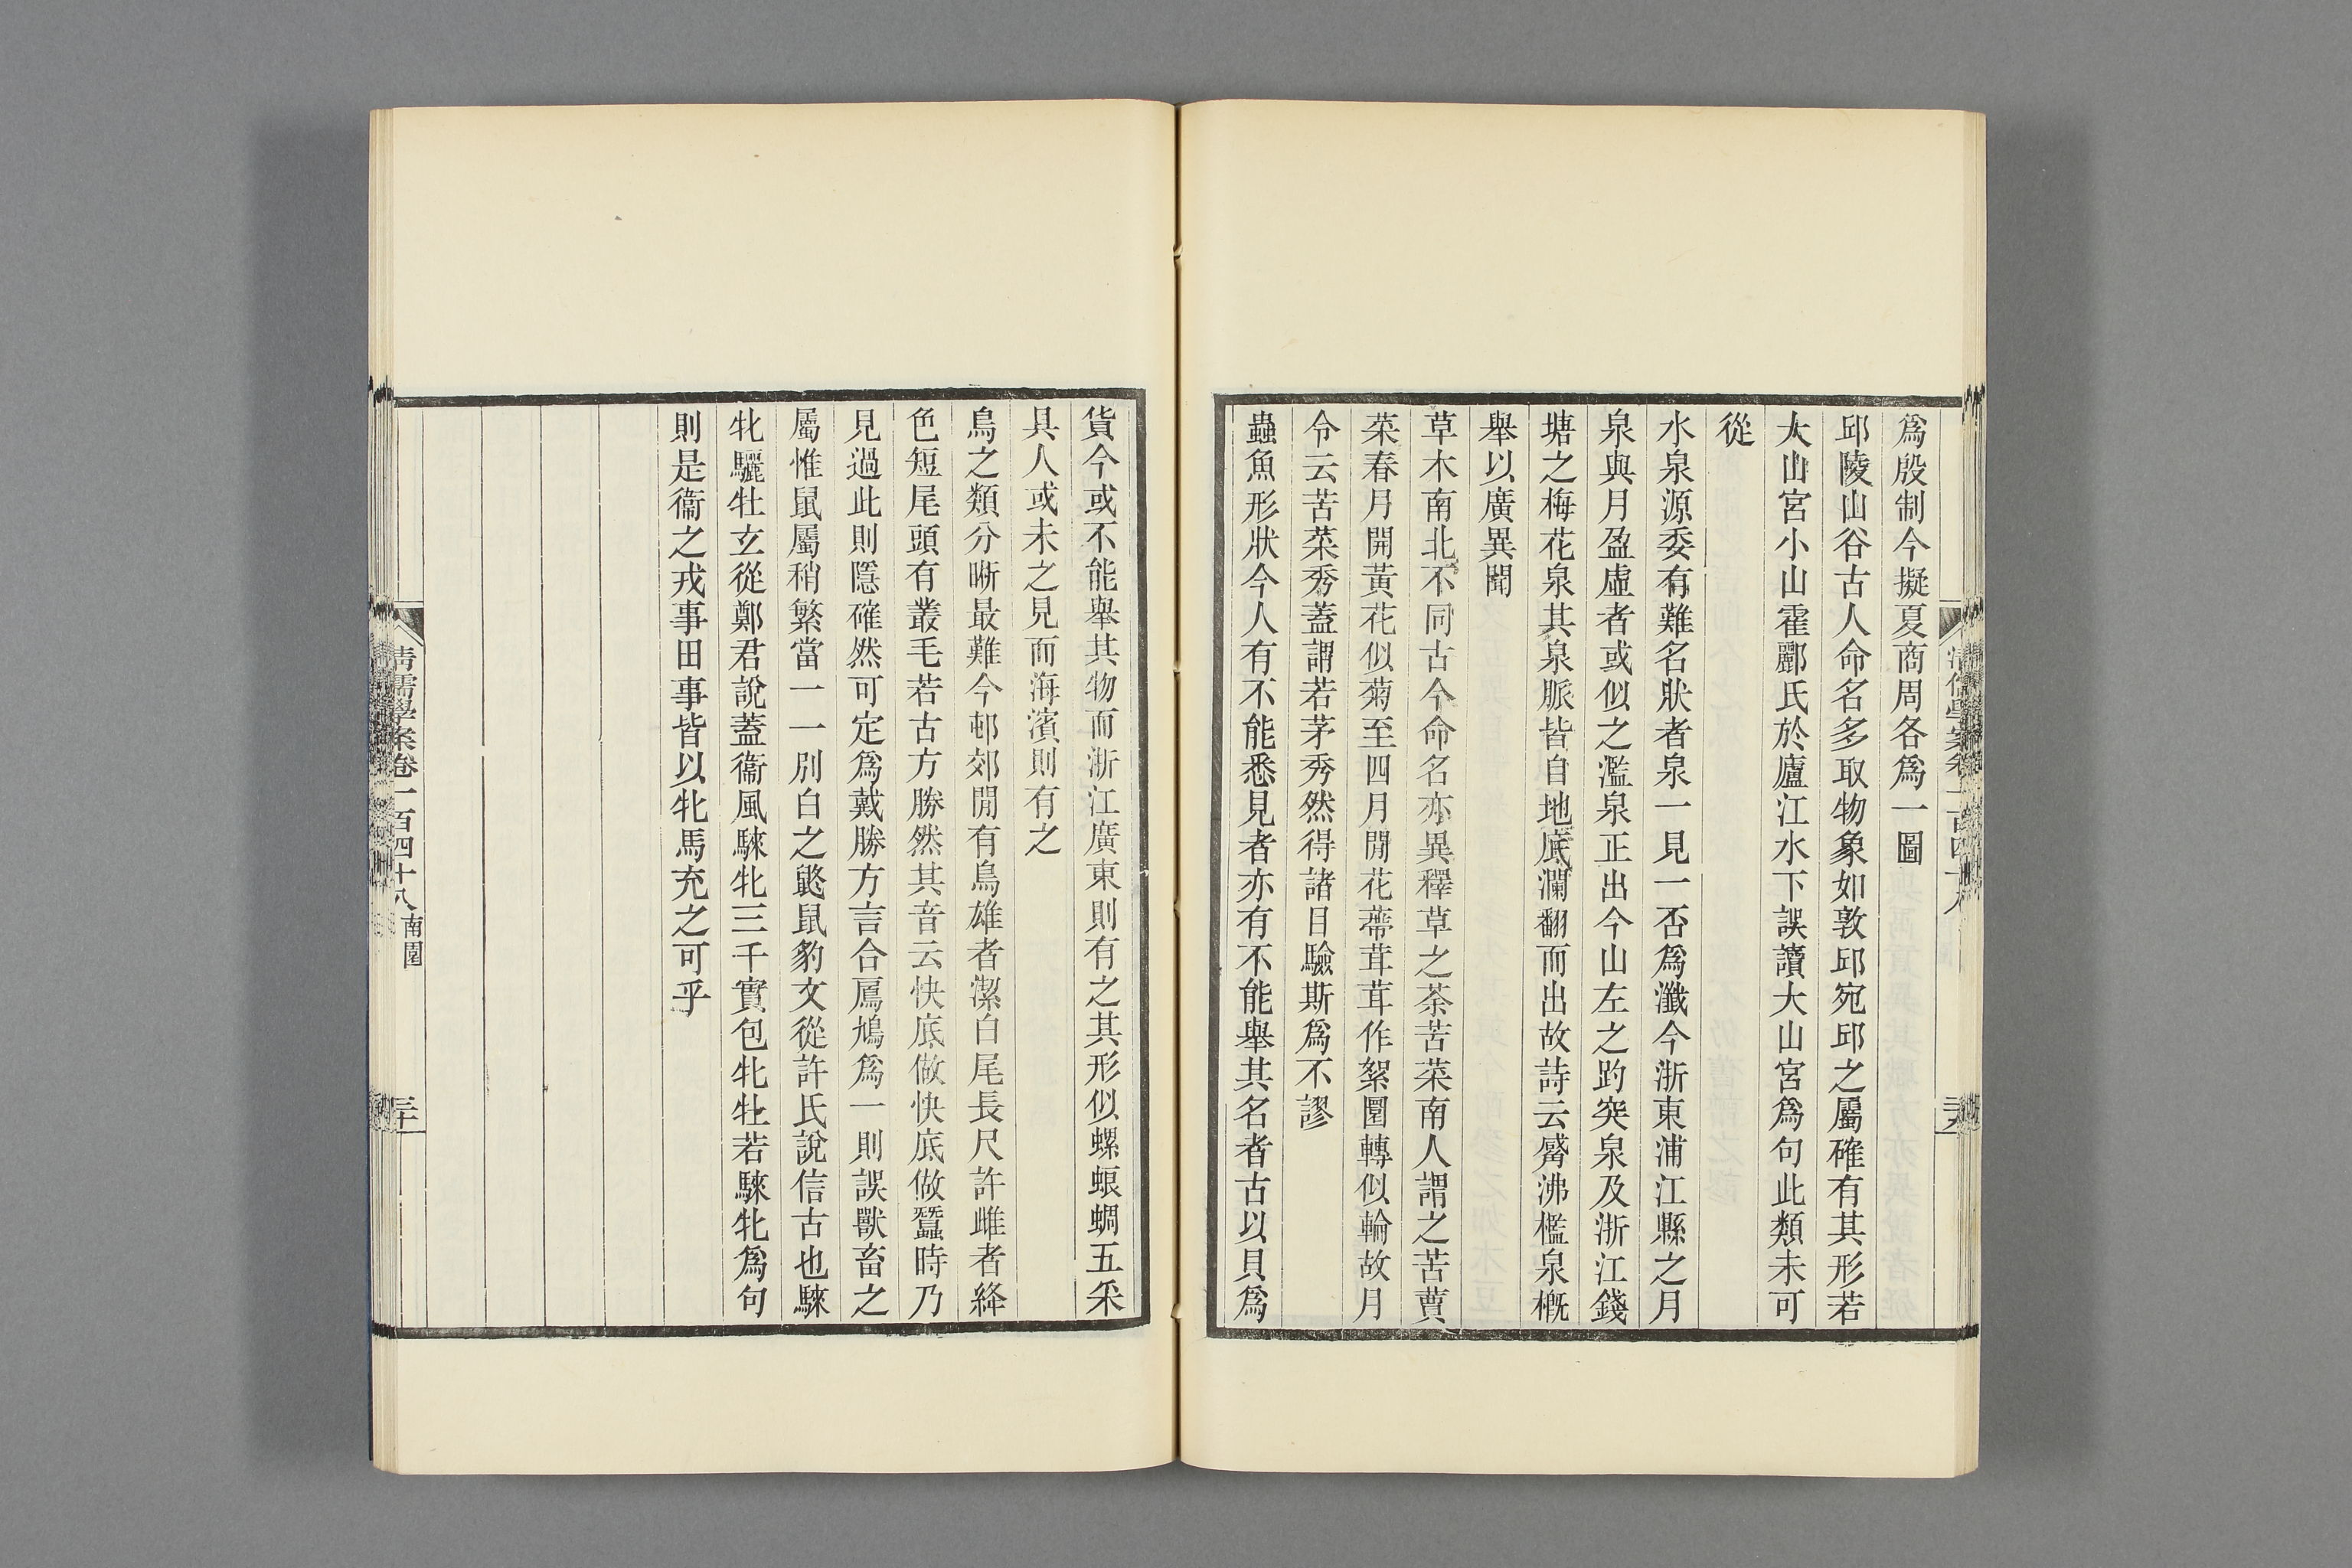 爲殷制今擬夏商周各爲一圖
邱陵山谷古人命名多取物象如敦邱宛邱之屬確有其形若
大山宮小山霍酈氏於廬江水下誤讀大山宮爲句此類未可
從
水泉源委有難名狀者泉一見一否爲瀸今浙東浦江縣之月
泉與月盈虛者或似之濫泉正出今山左之趵突泉及浙江錢
塘之梅花泉其泉脈皆自地底瀾翻而出故詩云觱沸檻泉槪
舉以廣異聞
草木南北不同古今命名亦異釋草之荼苦菜南人謂之苦蕒
菜春月開黃花似菊至四月閒花蔕茸茸作絮圍轉似輪故月
令云苦菜秀蓋謂若茅秀然得諸目驗斯爲不謬
蟲魚形狀今人有不能悉見者亦有不能舉其名者古以貝爲
貨今或不能舉其物而浙江廣東則有之其形似螺蜋蜩五采
具人或未之見而海濱則有之
鳥之類分晰最難今邨郊閒有鳥雄者潔白尾長尺許雌者絳
色短尾頭有叢毛若古方勝然其音云快底做快底做蠶時乃
見過此則隱確然可定爲戴勝方言合鳲鳩爲一則誤獸畜之
屬惟鼠屬稍繁當一一別白之鼮鼠豹文從許氏說信古也騋
牝驪牡玄從鄭君說蓋衞風騋牝三千實包牝牡若騋牝爲句
則是衞之戎事田事皆以牝馬充之可乎
清儒學案卷一百四十八 南園
三十